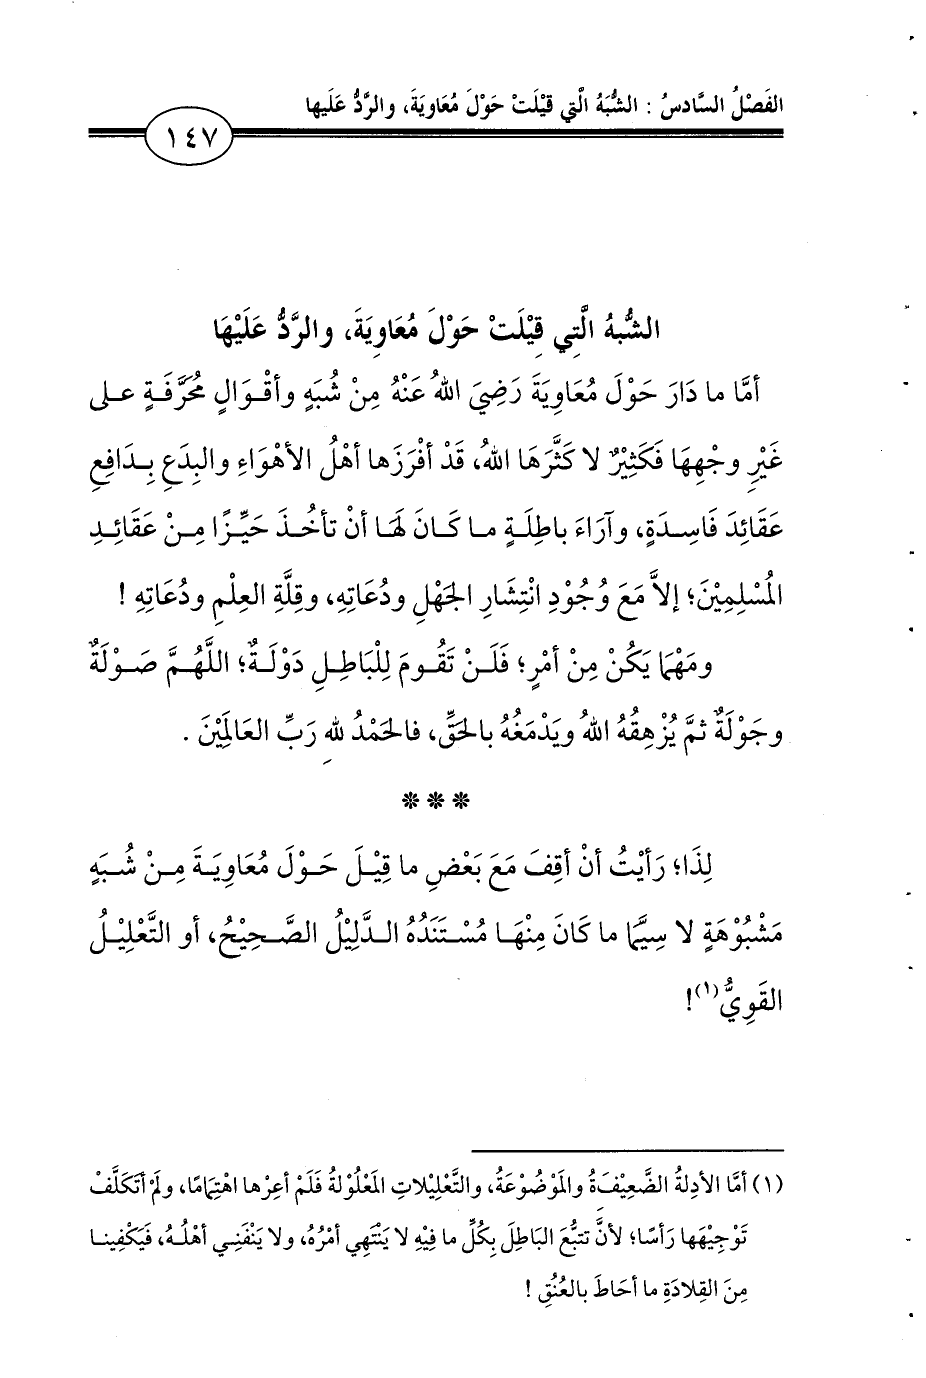 الفَصْلُ السَّادسُ : الشُّبَهُ الَّتِي قِيْلَتْ حَوْلَ مُعَاوِيَةَ، والرَّدُّ عَلَيها
١٤٧
الشُّبهُ الَّتِي قِيْلَتْ حَوْلَ مُعَاوِيَةَ، والرَّدُّ عَلَيْهَا
أمَّا ما دَارَ حَوْلَ مُعَاوِيَةَ رَضِيَ اللهُ عَنْهُ مِنْ شُبَهٍ وأقْوَالٍ مُحَرَّفَةٍ على
غَيْرِ وجْهِهَا فَكَثِيْرٌ لا كَثَّرَهَا اللهُ، قَدْ أفْرَزَها أهْلُ الأهْوَاءِ والبِدَعِ بِدَافِعِ
عَقَائِدَ فَاسِدَةٍ، وآرَاءَ باطِلَةٍ ما كَانَ لَهَا أنْ تأخُذَ حَيِّزًا مِنْ عَقَائِدِ
المُسْلِمِيْنَ؛ إلاَّ مَعَ وُجُوْدِ انْتِشَارِ الجَهْلِ ودُعَاتِهِ، وقِلَّةِ العِلْمِ ودُعَاتِهِ !
ومَهْمَا يَكُنْ مِنْ أمْرٍ؛ فَلَنْ تَقُومَ لِلْبَاطِلِ دَوْلَةٌ؛ اللَّهُمَّ صَوْلَةٌ
وجَوْلَةٌ ثمَّ يُزْهِقُهُ اللهُ ويَدْمَغُهُ بالحَقِّ، فالحَمْدُ للهِ رَبِّ العَالَمِيْنَ .
***
لِذَا؛ رَأيْتُ أنْ أقِفَ مَعَ بَعْضِ ما قِيْلَ حَوْلَ مُعَاوِيَةَ مِنْ شُبَهٍ
مَشْبُوْهَةٍ لا سِيَّما ما كَانَ مِنْهَا مُسْتَنَدُهُ الدَّلِيْلُ الصَّحِيْحُ، أو التَّعْلِيْلُ
القَوِيُّ(١)!
(١) أمَّا الأدِلةُ الضَّعِيْفَةُ والمَوْضُوْعَةُ، والتَّعْلِيلاتِ المَعْلُوْلةُ فَلَمْ أعِرْها اهْتِمَامًا، ولَمْ أتَكَلَّفْ
تَوْجِيْهَها رَأسًا؛ لأنَّ تتبُّعَ البَاطِلَ بِكُلِّ ما فِيْهِ لا يَنْتَهِي أمْرُهُ، ولا يَنْفَنِي أهْلُهُ، فَيَكْفِينا
مِنَ القِلادَةِ ما أحَاطَ بالعُنُقِ !